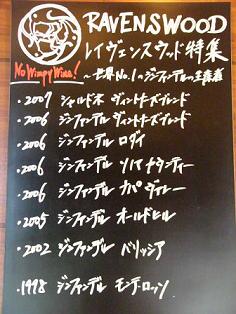 RAVENSWOOD
No Wimpy Wine!
レイヴェンスウッド特集
〜世界No.1のジンファンデルの生産者
・2007 シャルドネ ヴィントナーズブレンド
・2006 ジンファンデル ヴィントナーズブレンド
・2006 ジンファンデル ロダイ
・2006 ジンファンデル ソノマカウンティー
・2006 ジンファンデル ナパヴァレー
・2005 ジンファンデル オールドヒル
・2002 ジンファンデル バリッシア
・1998 ジンファンデル モンテロッソ